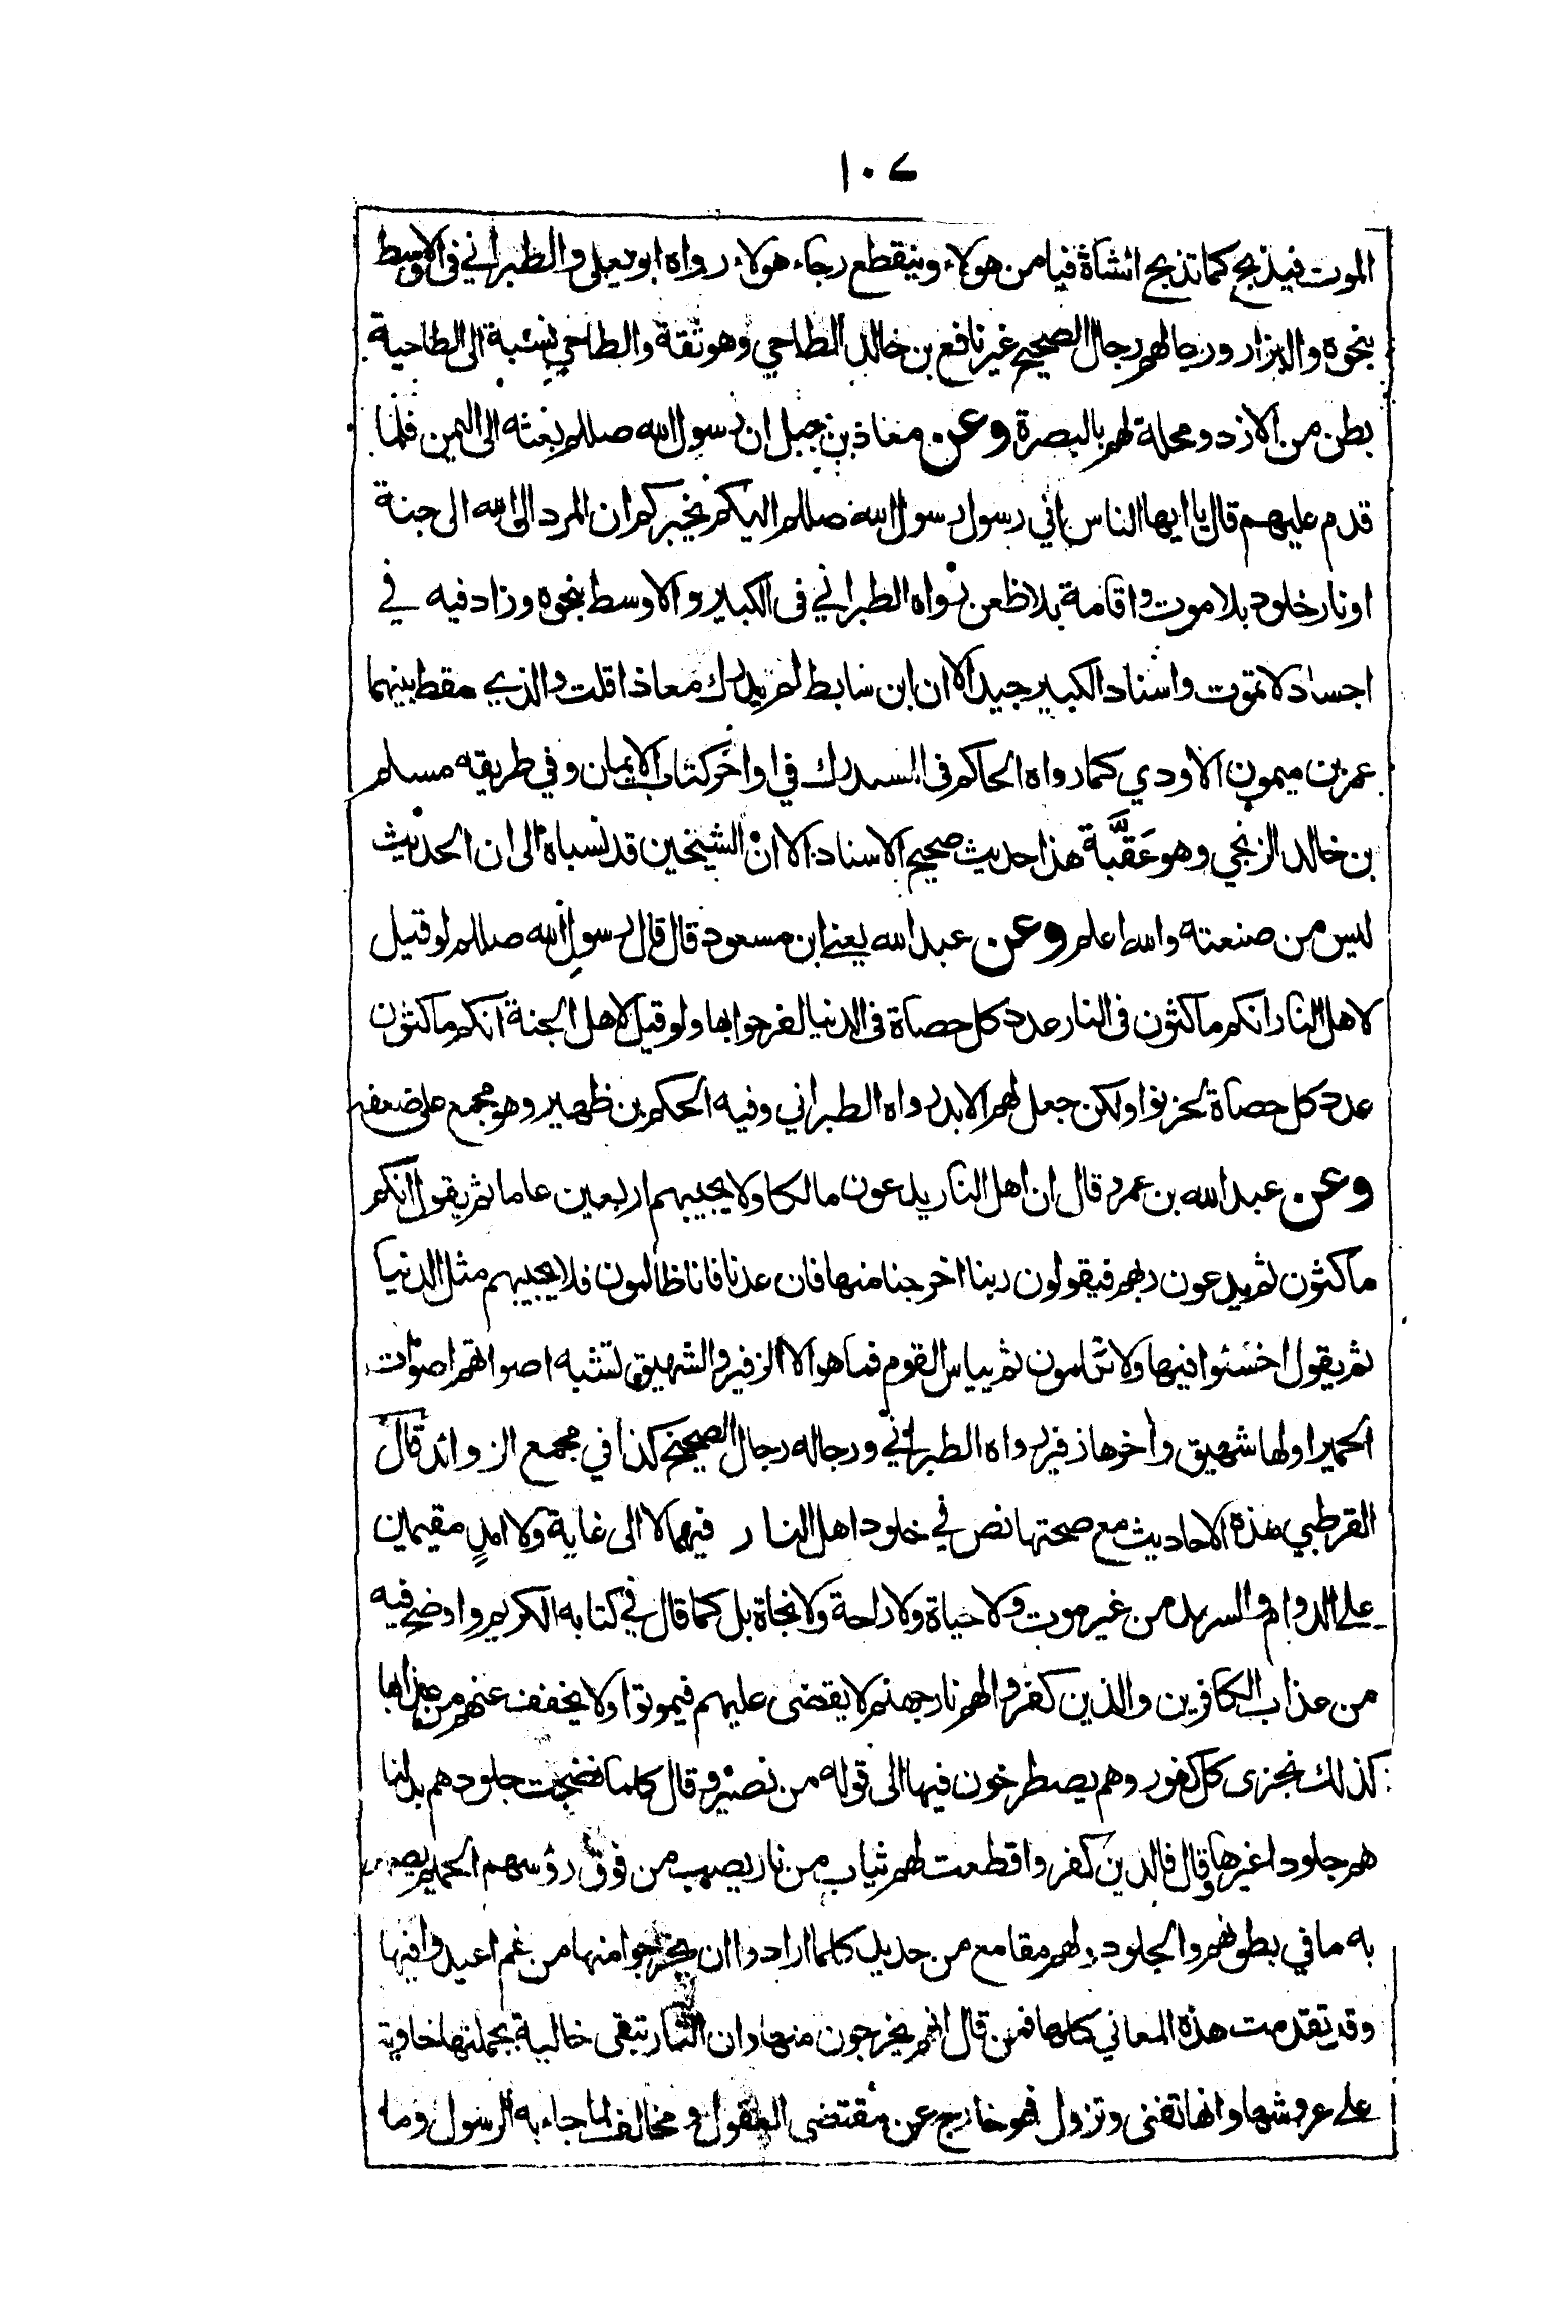 ١٠٧
الموت فيذبح كما تذبح الشاة فيامن هولاء وينقطع رجاء هولاء رواه ابو يعلى والطبراني في الاوسط
بنحوه والبزار ورجالهم رجال الصحيح غير نافع بن خالد الطاحي وهو ثقة والطاحي نسبة الى الطاحية
بطن من الازد ومحلة لهم بالبصرة وعن معاذ بن جبل ان رسول الله صللم بعثه الى اليمن فلما
قدم عليهم قال يا ايها الناس اني رسول رسول الله صللم اليكم يخبركم ان المرد الى الله الى جنة
او نار خلود بلا موت واقامة بلا ظعن رواه الطبراني في الكبير والاوسط بنحوه وزاد فيه في
اجساد لا تموت واسناد الكبير جيد الا ان ابن سابط لم يدرك معاذا قلت والذي سقط بينهما
عمر بن ميمون الاودي كما رواه الحاكم في المستدرك في اواخر كتاب الايمان وفي طريقه مسلم
بن خالد الزنجي وهو عقبة هذا حديث صحيح الاسناد الا ان الشيخين قد نسباه الى ان الحديث
ليس من صنعته والله اعلم وعن عبد الله يعني ابن مسعود قال قال رسول الله صللم لو قيل
لاهل النار انكم ماكثون في النار عدد كل حصاة في الدنيا لفرحوا بها ولو قيل لاهل الجنة انكم ماكثون
عدد كل حصاة لحزنوا ولكن جعل لهم الابد رواه الطبراني وفيه الحكم بن ظهير وهو مجمع على ضعفه
وعن عبد الله بن عمرو قال ان اهل النار يدعون مالكا ولا يجيبهم اربعين عاما ثم يقول انكم
ماكثون ثم يدعون ربهم فيقولون ربنا اخرجنا منها فان عدنا فانا ظالمون فلا يجيبهم مثل الدنيا
ثم يقول اخسئوا فيها ولا تكلمون ثم يياس القوم فما هو الا الزفير والشهيق تشبه اصواتهم اصوات
الحمير اولها شهيق واخرها زفير رواه الطبراني ورجاله رجال الصحيح كذا في مجمع الزوائد قال
القرطبي هذه الاحاديث مع صحتها نص في خلود اهل النار فيها لا الى غاية ولا امد مقيمين
على الدوام والسرمد من غير موت ولا حياة ولا راحة ولا نجاة بل كما قال في كتابه الكريم واوضح فيه
من عذاب الكافرين والذين كفروا لهم نار جهنم لا يقضى عليهم فيموتوا ولا يخفف عنهم من عذابها
كذلك نجزى كل كفور وهم يصطرخون فيها الى قوله من نصير وقال كلما نضجت جلودهم بدلنا
هم جلودا غيرها وقال فالذين كفروا قطعت لهم ثياب من نار يصب من فوق رؤسهم الحميم يصهر
به ما في بطونهم والجلود ولهم مقامع من حديد كلما ارادوا ان يخرجوا منها من غم اعيدوا فيها
وقد تقدمت هذه المعاني كلها فمن قال انهم يخرجون منها وان النار تبقى خالية بجملتها خاوية
على عروشها وانها تفنى وتزول فهو خارج عن مقتضى العقول ومخالف لما جاء به الرسول وما